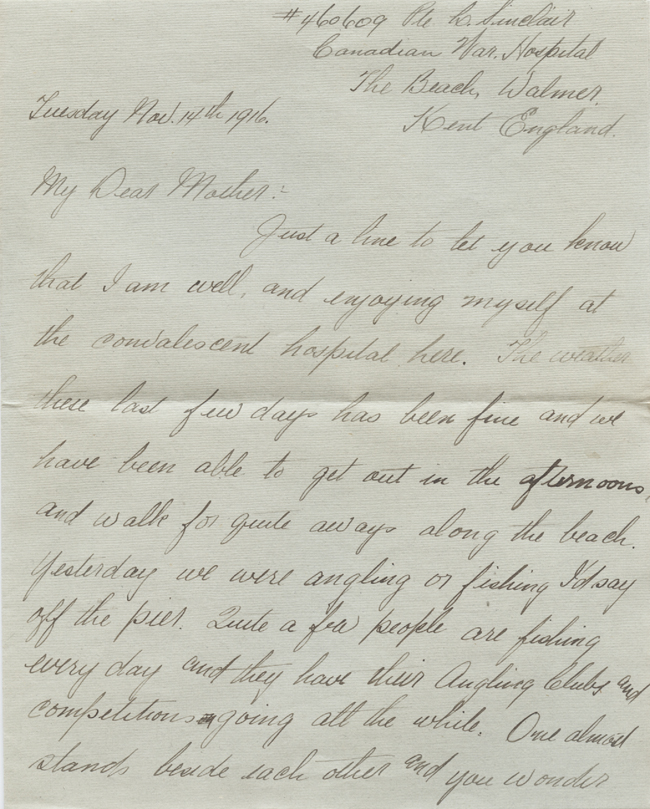 #460609 Pte L. Sinclair
Canadian War. Hospital
The Beach, Walmer.
Tuesday Nov. 14th 1916.
Kent England.
My Dear Mother:-
Just a line to let you know
that I am well, and enjoying myself at
the convalescent hospital here. The weather
these last few days has been fine and we
have been able to get out in the afternoons,
and walk for quite aways along the beach.
Yesterday we were angling or fishing I'd say
off the pier. Quite a few people are fishing
every day and they have their Angling Clubs and
competitions going all the while. One almost
stands beside each other and you wonder